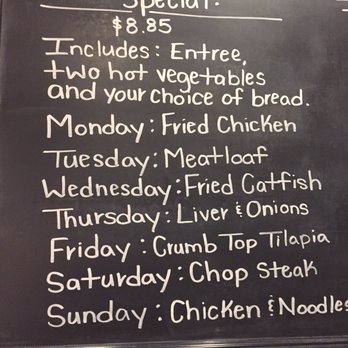 Special:
$8.85
Includes: Entree,
two hot vegetables
and your choice of bread.
Monday: Fried Chicken
Tuesday: Meatloaf
Wednesday: Fried Catfish
Thursday: Liver & Onions
Friday: Crumb Top Tilapia
Saturday: Chop Steak
Sunday: Chicken & Noodles